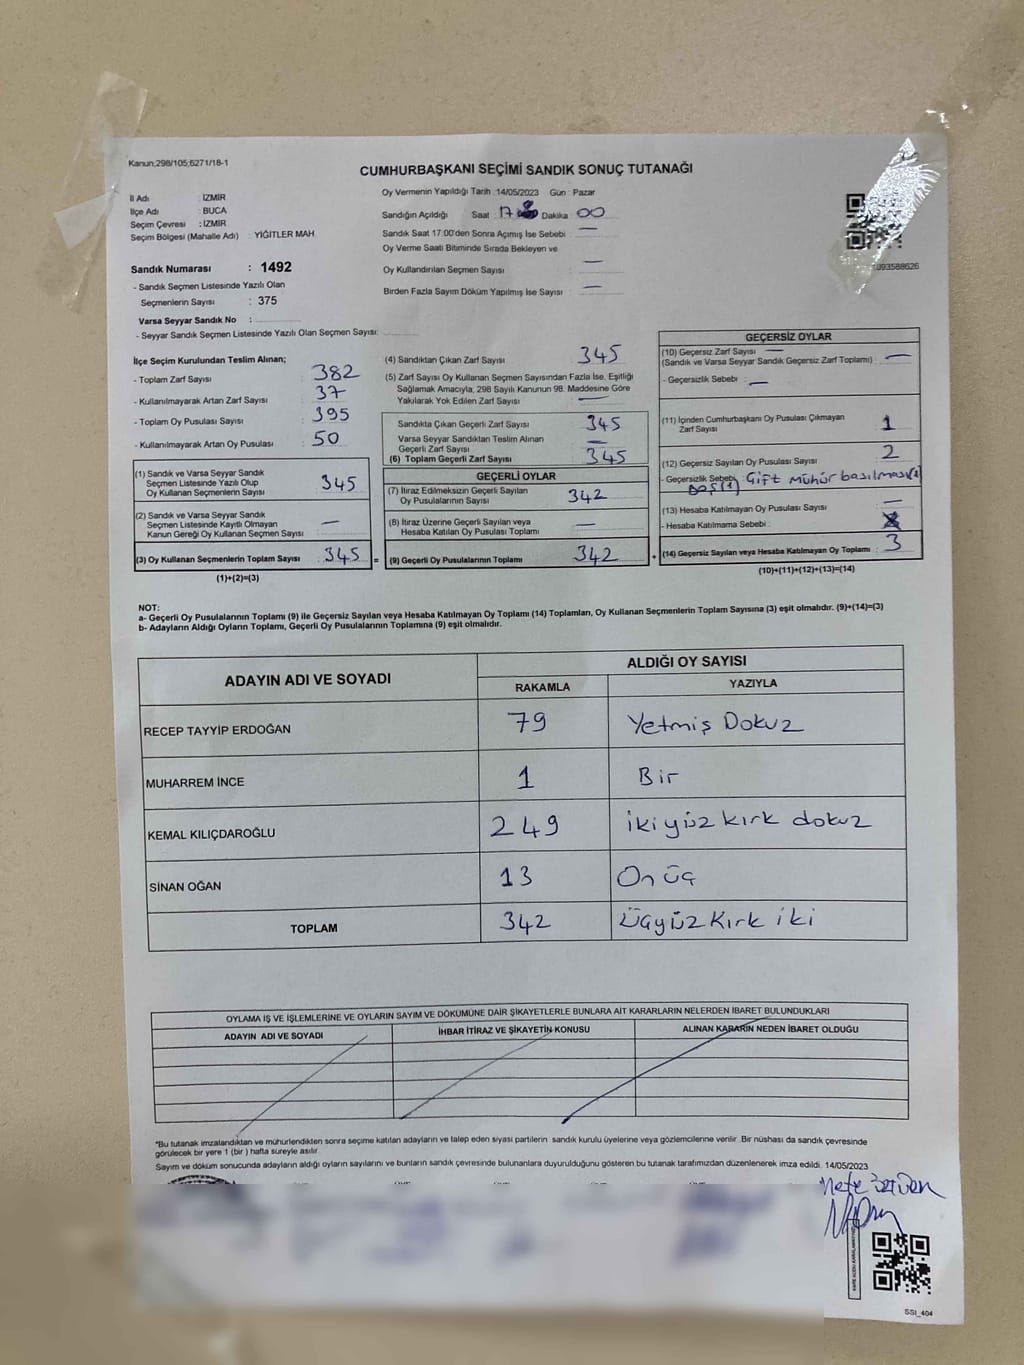 Kanun;298/105;6271/18-1
CUMHURBAŞKANI SEÇİMİ SANDIK SONUÇ TUTANAĞI
İl Adı : İZMİR
İlçe Adı : BUCA
Seçim Çevresi : İZMİR
Seçim Bölgesi (Mahalle Adı) : YİĞİTLER MAH.
Sandık Numarası : 1492
- Sandık Seçmen Listesinde Yazılı Olan
Seçmenlerin Sayısı : 375
Varsa Seyyar Sandık No :
- Seyyar Sandık Seçmen Listesinde Yazılı Olan Seçmen Sayısı:
Oy Vermenin Yapıldığı Tarih :14/05/2023 Gün : Pazar
Sandığın Açıldığı Saat : 17 Dakika : 00
Sandık Saat 17:00'den Sonra Açılmış İse Sebebi : —
Oy Verme Saati Bitiminde Sırada Bekleyen ve
Oy Kullandırılan Seçmen Sayısı : —
Birden Fazla Sayım Döküm Yapılmış İse Sayısı : —
İlçe Seçim Kurulundan Teslim Alınan;
- Toplam Zarf Sayısı : 382
- Kullanılmayarak Artan Zarf Sayısı : 37
- Toplam Oy Pusulası Sayısı : 395
- Kullanılmayarak Artan Oy Pusulası : 50
(1) Sandık ve Varsa Seyyar Sandık
Seçmen Listesinde Yazılı Olup
Oy Kullanan Seçmenlerin Sayısı : 345
(2) Sandık ve Varsa Seyyar Sandık
Seçmen Listesinde Kayıtlı Olmayan
Kanun Gereği Oy Kullanan Seçmen Sayısı : —
(3) Oy Kullanan Seçmenlerin Toplam Sayısı : 345 =
(1)+(2)=(3)
(4) Sandıktan Çıkan Zarf Sayısı : 345
(5) Zarf Sayısı Oy Kullanan Seçmen Sayısından Fazla İse, Eşitliği
Sağlamak Amacıyla, 298 Sayılı Kanunun 98. Maddesine Göre
Yakılarak Yok Edilen Zarf Sayısı : —
Sandıkta Çıkan Geçerli Zarf Sayısı : 345
Varsa Seyyar Sandıktan Teslim Alınan
Geçerli Zarf Sayısı : —
(6) Toplam Geçerli Zarf Sayısı : 345
GEÇERLİ OYLAR
(7) İtiraz Edilmeksizin Geçerli Sayılan
Oy Pusulalarının Sayısı : 342
(8) İtiraz Üzerine Geçerli Sayılan veya
Hesaba Katılan Oy Pusulası Toplamı : —
(9) Geçerli Oy Pusulalarının Toplamı : 342 +
GEÇERSİZ OYLAR
(10) Geçersiz Zarf Sayısı —
(Sandık ve Varsa Seyyar Sandık Geçersiz Zarf Toplamı) : —
- Geçersizlik Sebebi : —
(11) İçinden Cumhurbaşkanı Oy Pusulası Çıkmayan
Zarf Sayısı : 1
(12) Geçersiz Sayılan Oy Pusulası Sayısı : 2
- Geçersizlik Sebebi: Boş(1) Çift mühür basılması(1)
(13) Hesaba Katılmayan Oy Pusulası Sayısı : —
- Hesaba Katılmama Sebebi :
(14) Geçersiz Sayılan veya Hesaba Katılmayan Oy Toplamı : 3
(10)+(11)+(12)+(13)=(14)
NOT:
a- Geçerli Oy Pusulalarının Toplamı (9) ile Geçersiz Sayılan veya Hesaba Katılmayan Oy Toplamı (14) Toplamları, Oy Kullanan Seçmenlerin Toplam Sayısına (3) eşit olmalıdır. (9)+(14)=(3)
b- Adayların Aldığı Oyların Toplamı, Geçerli Oy Pusulalarının Toplamına (9) eşit olmalıdır.
ADAYIN ADI VE SOYADI ALDIĞI OY SAYISI
RAKAMLA YAZIYLA
RECEP TAYYİP ERDOĞAN 79 Yetmiş Dokuz
MUHARREM İNCE 1 Bir
KEMAL KILIÇDAROĞLU 249 ikiyüz kırk dokuz
SİNAN OĞAN 13 On üç
TOPLAM 342 Üçyüz Kırk iki
OYLAMA İŞ VE İŞLEMLERİNE VE OYLARIN SAYIM VE DÖKÜMÜNE DAİR ŞİKAYETLERLE BUNLARA AİT KARARLARIN NELERDEN İBARET BULUNDUKLARI
ADAYIN ADI VE SOYADI İHBAR İTİRAZ VE ŞİKAYETİN KONUSU ALINAN KARARIN NEDEN İBARET OLDUĞU
*Bu tutanak imzalandıktan ve mühürlendikten sonra seçime katılan adayların ve talep eden siyasi partilerin sandık kurulu üyelerine veya gözlemcilerine verilir. Bir nüshası da sandık çevresinde
görülecek bir yere 1 (bir ) hafta süreyle asılır.
Sayım ve döküm sonucunda adayların aldığı oyların sayılarını ve bunların sandık çevresinde bulunanlara duyurulduğunu gösteren bu tutanak tarafımızdan düzenlenerek imza edildi. 14/05/2023
SSI_404